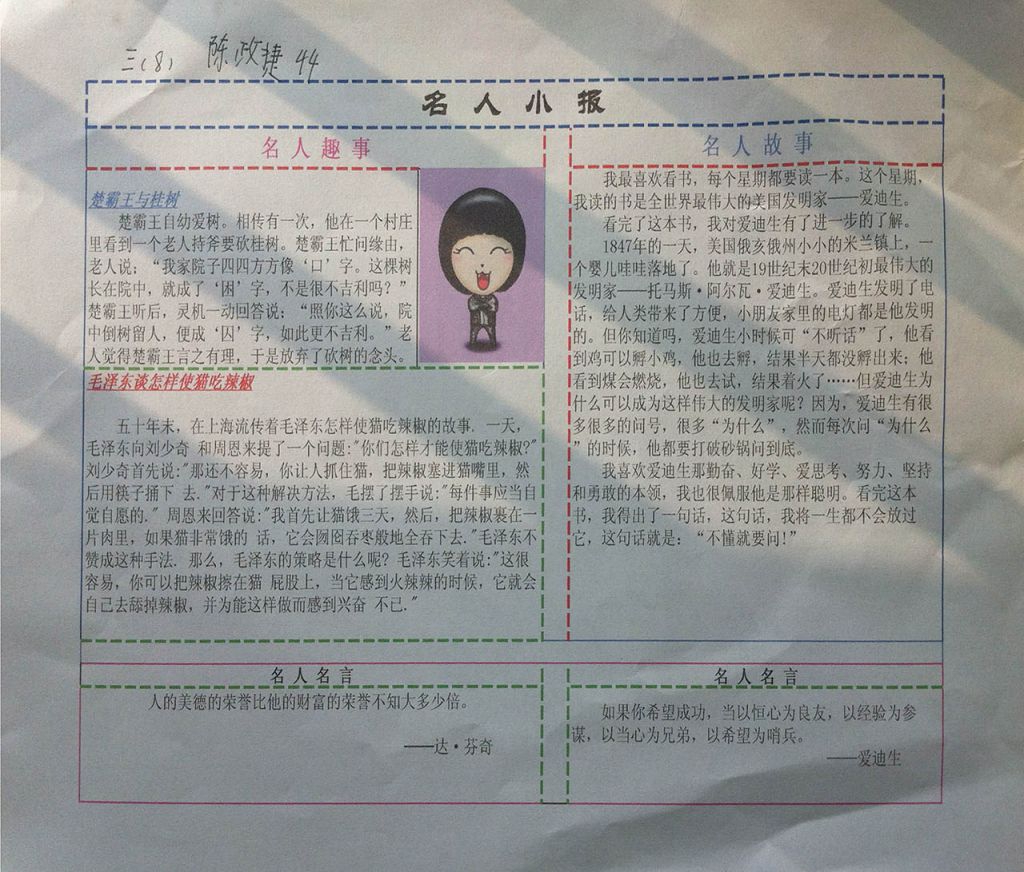 三(8) 陈政捷 44
名人小报
名人趣事
楚霸王与桂树
楚霸王自幼爱树。相传有一次，他在一个村庄
里看到一个老人持斧要砍桂树。楚霸王忙问缘由，
老人说：“我家院子四四方方像‘口’字。这棵树
长在院中，就成了‘困’字，不是很不吉利吗？”
楚霸王听后，灵机一动回答说：“照你这么说，院
中倒树留人，便成‘囚’字，如此更不吉利。”老
人觉得楚霸王言之有理，于是放弃了砍树的念头。
毛泽东谈怎样使猫吃辣椒
五十年末，在上海流传着毛泽东怎样使猫吃辣椒的故事. 一天，
毛泽东向刘少奇 和周恩来提了一个问题:"你们怎样才能使猫吃辣椒?"
刘少奇首先说:"那还不容易，你让人抓住猫，把辣椒塞进猫嘴里，然
后用筷子捅下 去."对于这种解决方法，毛摆了摆手说:"每件事应当自
觉自愿的." 周恩来回答说:"我首先让猫饿三天，然后，把辣椒裹在一
片肉里，如果猫非常饿的 话，它会囫囵吞枣般地全吞下去."毛泽东不
赞成这种手法. 那么，毛泽东的策略是什么呢? 毛泽东笑着说:"这很
容易，你可以把辣椒擦在猫 屁股上，当它感到火辣辣的时候，它就会
自己去舔掉辣椒，并为能这样做而感到兴奋 不已."
名人故事
我最喜欢看书，每个星期都要读一本。这个星期，
我读的书是全世界最伟大的美国发明家——爱迪生。
看完了这本书，我对爱迪生有了进一步的了解。
1847年的一天，美国俄亥俄州小小的米兰镇上，一
个婴儿哇哇落地了。他就是19世纪末20世纪初最伟大的
发明家——托马斯·阿尔瓦·爱迪生。爱迪生发明了电
话，给人类带来了方便，小朋友家里的电灯都是他发明
的。但你知道吗，爱迪生小时候可“不听话”了，他看
到鸡可以孵小鸡，他也去孵，结果半天都没孵出来；他
看到煤会燃烧，他也去试，结果着火了……但爱迪生为
什么可以成为这样伟大的发明家呢？因为，爱迪生有很
多很多的问号，很多“为什么”，然而每次问“为什么
”的时候，他都要打破砂锅问到底。
我喜欢爱迪生那勤奋、好学、爱思考、努力、坚持
和勇敢的本领，我也很佩服他是那样聪明。看完这本
书，我得出了一句话，这句话，我将一生都不会放过
它，这句话就是：“不懂就要问!”
名人名言
人的美德的荣誉比他的财富的荣誉不知大多少倍。
——达·芬奇
名人名言
如果你希望成功，当以恒心为良友，以经验为参
谋，以当心为兄弟，以希望为哨兵。
——爱迪生